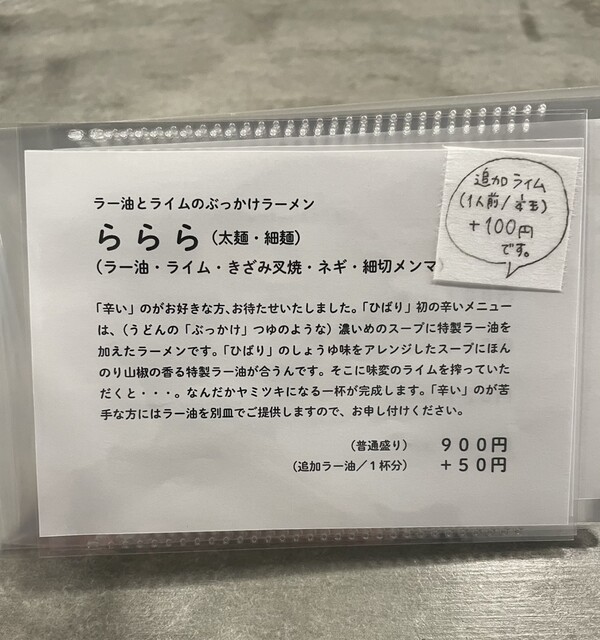 ラー油とライムのぶっかけラーメン
ららら(太麺・細麺)
(ラー油・ライム・きざみ叉焼・ネギ・細切メンマ
「辛い」のがお好きな方、お待たせいたしました。「ひばり」初の辛いメニュー
は、(うどんの「ぶっかけ」つゆのような)濃いめのスープに特製ラー油を
加えたラーメンです。「ひばり」のしょうゆ味をアレンジしたスープにほん
のり山椒の香る特製ラー油が合うんです。そこに味変のライムを搾っていた
だくと・・・。なんだかヤミツキになる一杯が完成します。「辛い」のが苦
手な方にはラー油を別皿でご提供しますので、お申し付けください。
(普通盛り) 900円
(追加ラー油/1杯分) +50円
追加ライム
(1人前/¼玉)
+100円
です。